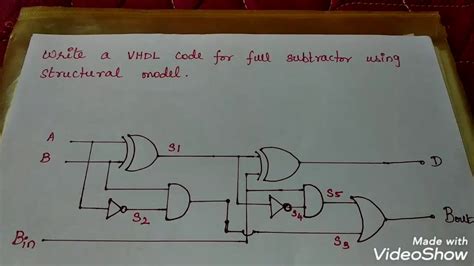 Write a VHDL code for full subtractor using
structural model.
A
B
S1
D
S2
S5
S4
Bout
S3
Bin
Made with
VideoShow